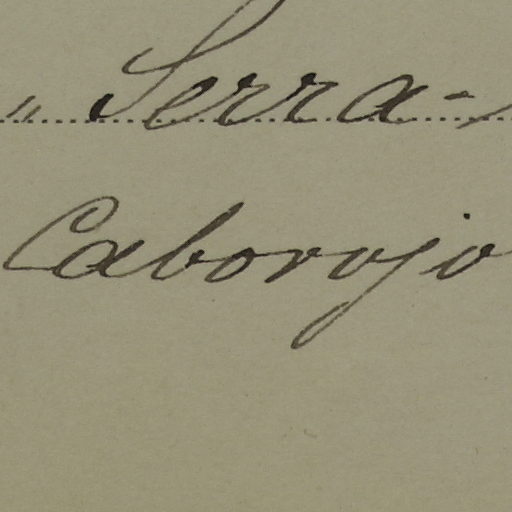 „ Serra-
Caborojo